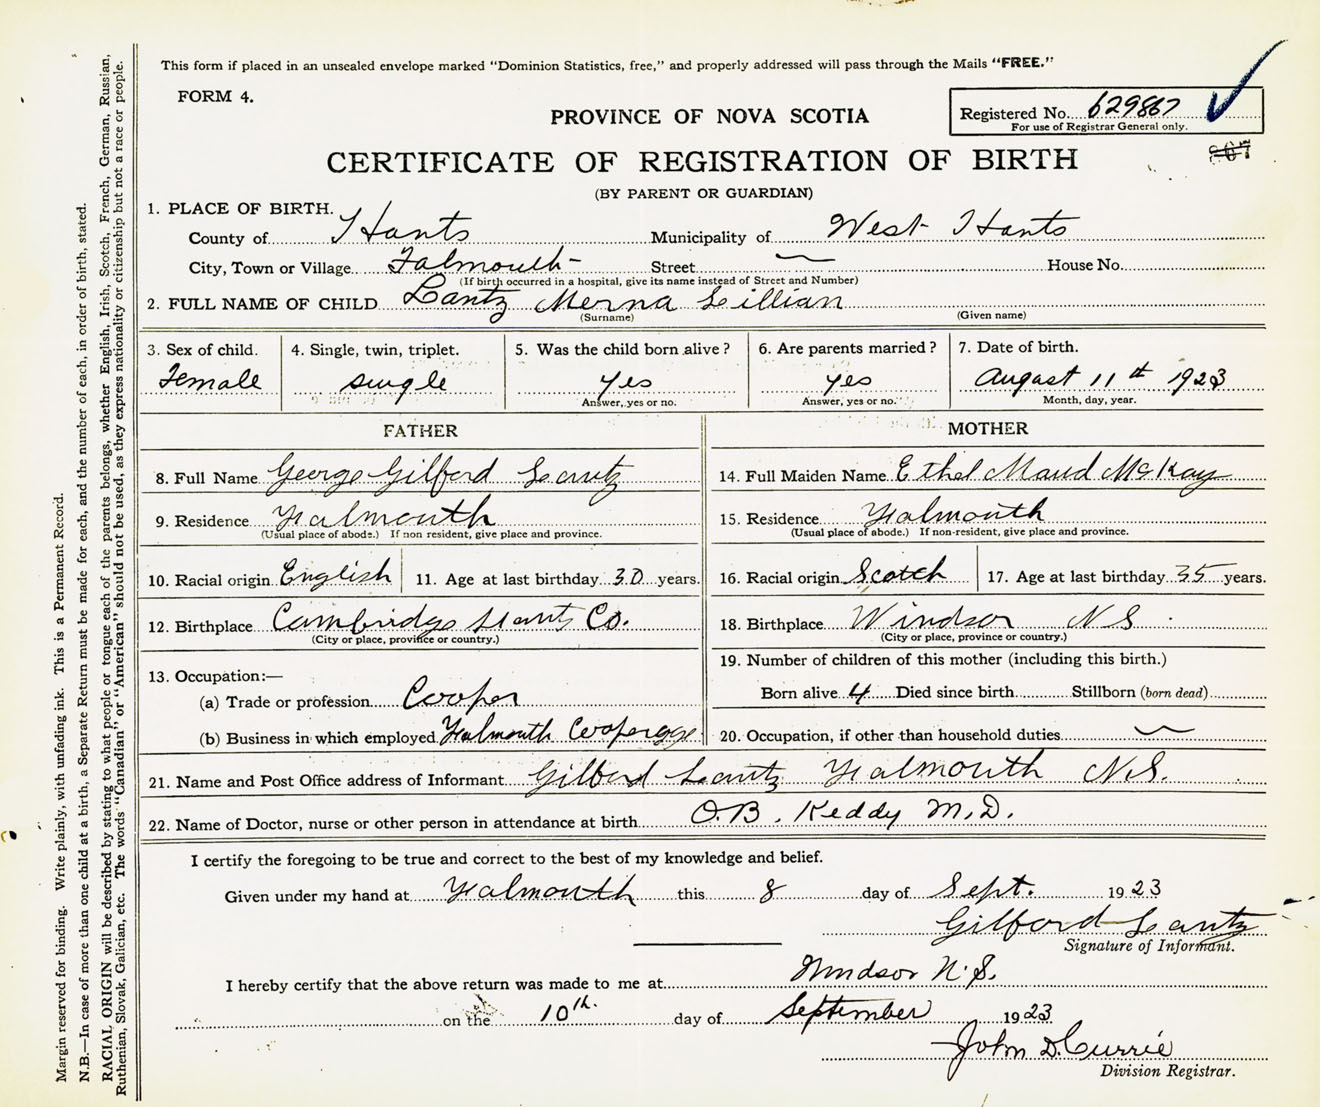 This form if placed in an unsealed envelope marked "Dominion Statistics, free," and properly addressed will pass through the Mails "FREE."
FORM 4.
Registered No. 629867
For use of Registrar General only.
867
PROVINCE OF NOVA SCOTIA
CERTIFICATE OF REGISTRATION OF BIRTH
(BY PARENT OR GUARDIAN)
1. PLACE OF BIRTH.
County of Hants Municipality of West Hants
City, Town or Village Falmouth Street House No.
(If birth occurred in a hospital, give its name instead of Street and Number)
2. FULL NAME OF CHILD Lantz Merna Lillian
(Surname) (Given name)
3. Sex of child. 4. Single, twin, triplet. 5. Was the child born alive? 6. Are parents married? 7. Date of birth.
Female single yes yes August 11th 1923
Answer, yes or no. Answer, yes or no. Month, day, year.
FATHER MOTHER
8. Full Name George Gilford Lantz 14. Full Maiden Name Ethel Maud McKay
9. Residence Falmouth 15. Residence Falmouth
(Usual place of abode.) If non resident, give place and province. (Usual place of abode.) If non-resident, give place and province.
10. Racial origin English 11. Age at last birthday 30 years. 16. Racial origin Scotch 17. Age at last birthday 35 years.
12. Birthplace Cambridge Hants Co. 18. Birthplace Windsor N S
(City or place, province or country.) (City or place, province or country.)
13. Occupation:— 19. Number of children of this mother (including this birth.)
(a) Trade or profession Cooper Born alive 4 Died since birth Stillborn (born dead)
(b) Business in which employed Falmouth Cooperage 20. Occupation, if other than household duties
21. Name and Post Office address of Informant Gilford Lantz Falmouth N.S.
22. Name of Doctor, nurse or other person in attendance at birth O.B. Keddy M.D.
I certify the foregoing to be true and correct to the best of my knowledge and belief.
Given under my hand at Falmouth this 8 day of Sept. 1923
Gilford Lantz
Signature of Informant.
I hereby certify that the above return was made to me at Windsor N.S.
on the 10th. day of September 1923
John D. Currie
Division Registrar.
Margin reserved for binding. Write plainly, with unfading ink. This is a Permanent Record.
N.B.—In case of more than one child at a birth, a Separate Return must be made for each, and the number of each, in order of birth, stated.
RACIAL ORIGIN will be described by stating to what people or tongue each of the parents belongs, whether English, Irish, Scotch, French, German, Russian,
Ruthenian, Slovak, Galician, etc. The words "Canadian" or "American" should not be used, as they express nationality or citizenship but not a race or people.